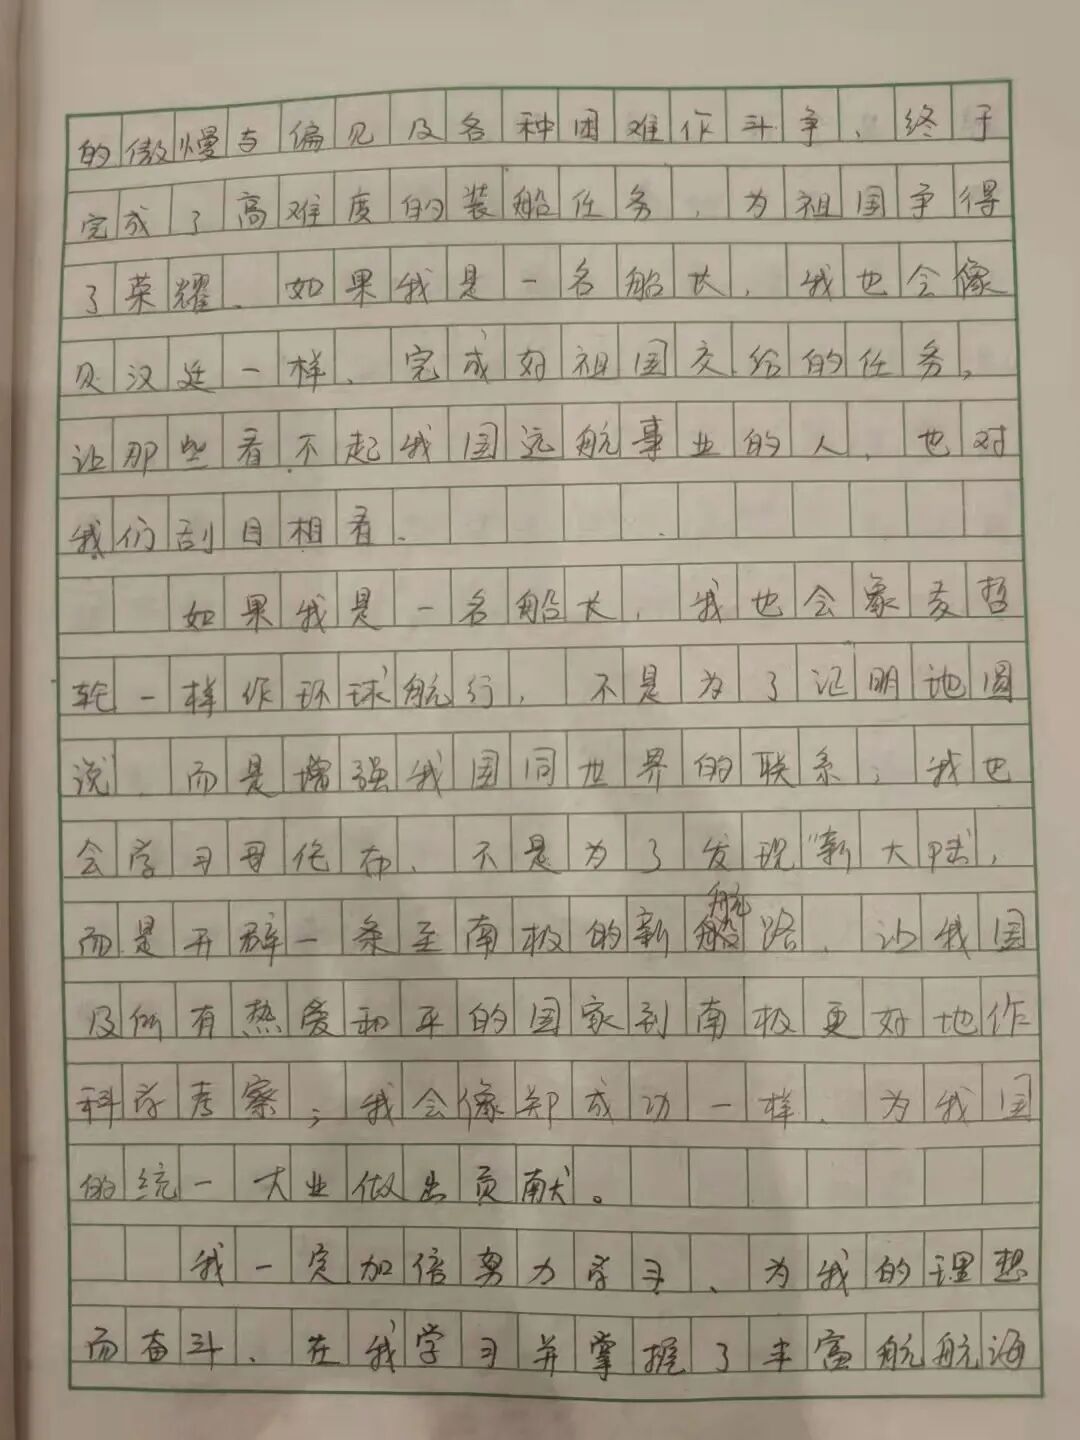 的傲慢与偏见及各种困难作斗争、终于
完成了高难度的装船任务，为祖国争得
了荣耀、如果我是一名船长，我也会像
贝汉廷一样、完成好祖国交给的任务，
让那些看不起我国远航事业的人，也对
我们刮目相看.
如果我是一名船长，我也会象麦哲
轮一样作环球航行，不是为了证明地圆
说、而是增强我国同世界的联系；我也
会学习哥伦布、不是为了发现"新大陆，
而是开辟一条至南极的新航路、让我国
及所有热爱和平的国家到南极更好地作
科学考察；我会像郑成功一样、为我国
的统一大业做出贡献。
我一定加倍努力学习、为我的理想
而奋斗、在我学习并掌握了丰富航航海